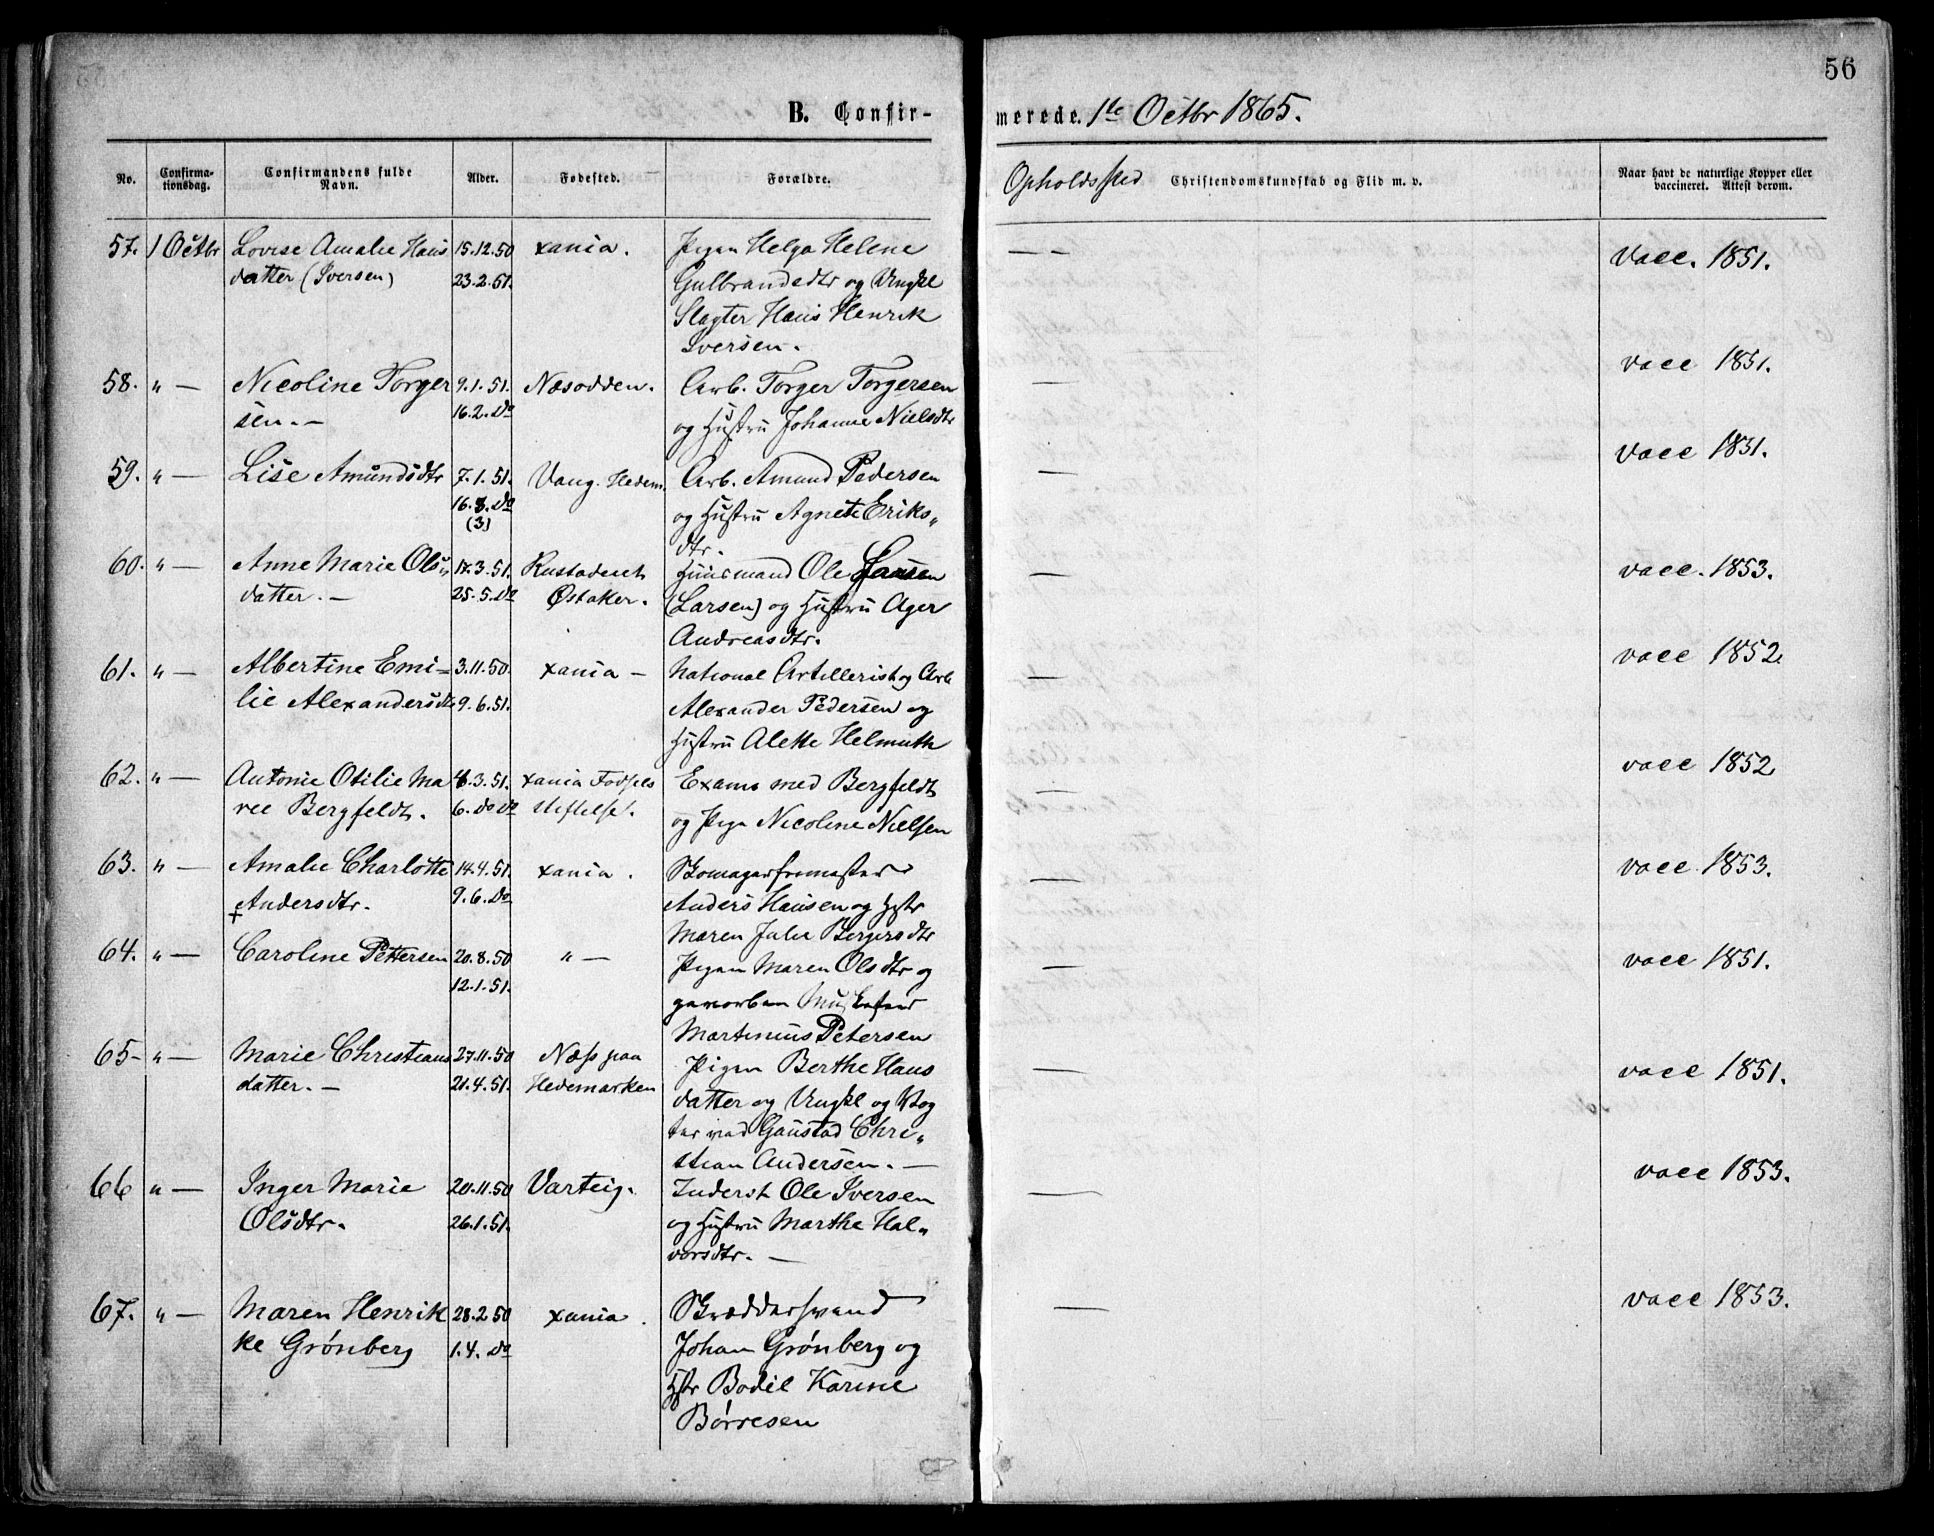 56
B. Confir-
merede. 1te Octbr 1865.
No.
Confirma-
tionsdag.
Confirmandens fulde
Navn.
Alder.
Fødested.
Forældre.
Opholdssted
Christendomskundskab og Flid m. v.
Naar havt de naturlige Kopper eller
vaccineret. Attest derom.
57. 1 Octbr Lovise Amalie Hans 15.12.50 xania. Pigen Helga Helene — — Vacc. 1851.
datter (Iversen) 23.2.51. Gulbrandsdtr og Ungkl
Slagter Hans Henrik
Iversen.
58. " — Nicoline Torger 9.1.51. Næsodden. Arb. Torger Torgersen — vacc 1851.
sen. — 16.2. do og Hustru Johanne Nielsdtr
59. " — Lise Amundsdtr 7.1.51. Vang. Hedem. Arb. Amund Pedersen — vacc 1851.
16.3. do og Hustru Agnete Eriks„
(3) dtr.
60. " — Anne Marie Ols„ 17.3.51. Rustaderet Huusmand Ole Hansen — vacc. 1853.
datter. — 25.5. do Østaker. (Larsen) og Hustru Ager
Andreasdtr.
61. " — Albertine Emi- 3.11.50. xania — National Artillerist og Arb — vacc 1852
lie Alexandersdtr 9.6.51. Alexander Pedersen og
Hustru Alette Helmuth
62. " — Antonie Otilie Ma 4.3.51. xania Fødsels Exams med Bergfeldt — vacc 1852
rie Bergfeldt. 6. do do stiftelse. og Pige Nicoline Nielsen
63. " — Amalie Charlotte 14.4.51. xania. Skomagerfremester — vacc. 1853.
+ Andersdtr. 9.6. do Anders Hansen og Hstr
Maren Julie Bergersdtr
64. " — Caroline Pettersen 20.8.50 " — Pigen Maren Olsdtr og — vacc 1851.
12.1.51. gevorben Musketeer
Martinius Petersen
65 - " — Marie Christians 27.11.50 Næss paa Pigen Berthe Hans — vacc 1851.
datter. — 21.4.51. Hedemarken datter og Ungkl og Vog
ter ved Gaustad Chri„
stian Andersen. —
66 " — Inger Marie 20.11.50 Varteig. Inderst Ole Iversen — vacc 1853.
Olsdtr. 26.1.51. og Hustru Marthe Hal„
vorsdtr. —
67. " — Maren Henrik 28.2.50 xania. Skræddersvend — vacc 1853.
ke Grønberg 1.4. do Johan Grønberg og
Hstr Bodil Karine
Børresen